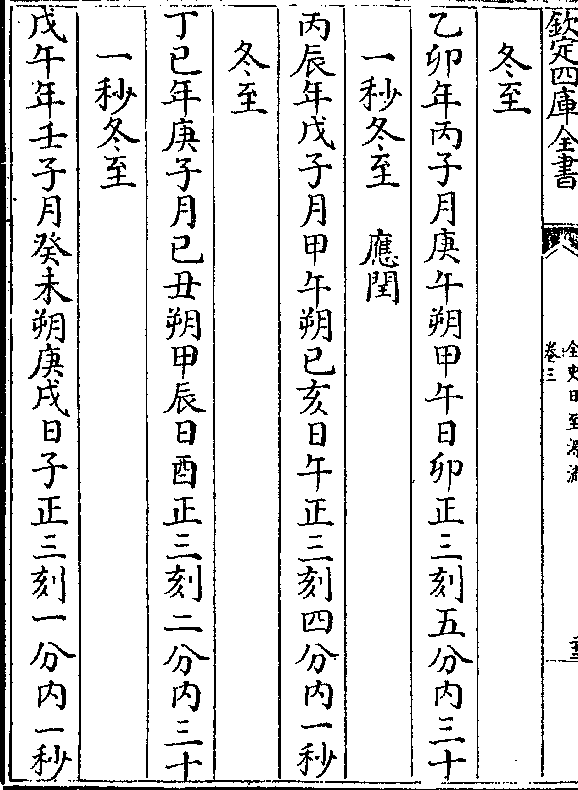 欽定四庫全書
全史日至源流
卷三
冬至
乙卯年丙子月庚午朔甲午日卯正三刻五分內三十
一秒冬至　應閏
丙辰年戊子月甲午朔己亥日午正三刻四分內一秒
冬至
丁巳年庚子月己丑朔甲辰日酉正三刻二分內三十
一秒冬至
戊午年壬子月癸未朔庚戌日子正三刻一分內一秒